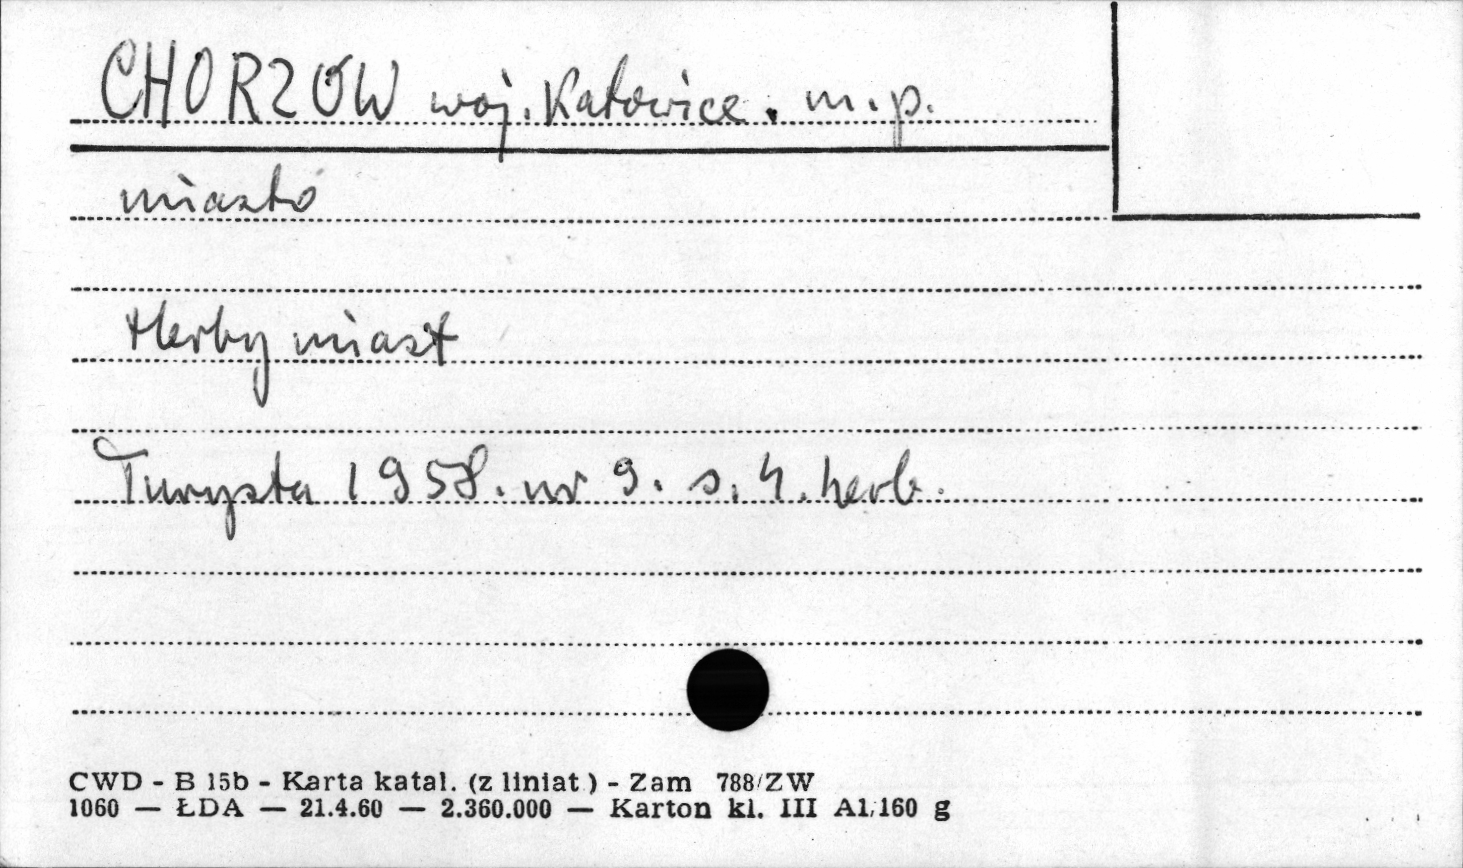 CHORZÓW woj. Katowice. m. p.
miasto
Herby miast
Turysta 1958. nr 9. s. 4. herb.
CWD - B 15b - Karta katal. (z liniat.) - Zam 788/ZW
1060 — ŁDA — 21.4.60 — 2.360.000 — Karton kl. III A1/160 g